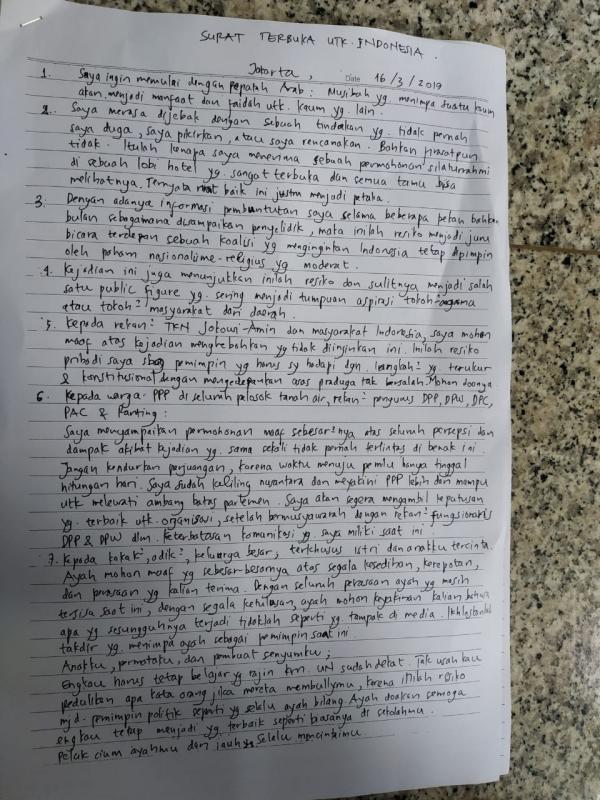 SURAT TERBUKA UTK. INDONESIA.
Jakarta, Date 16/3/2019
1. Saya ingin memulai dengan pepatah Arab: Musibah yg. menimpa suatu kaum
akan menjadi manfaat dan faidah utk. kaum yg. lain.
2. Saya merasa dijebak dengan sebuah tindakan yg. tidak pernah
saya duga, saya pikirkan, atau saya rencanakan. Bahkan firasatpun
tidak. Itulah kenapa saya menerima sebuah permohonan silaturrahmi
di sebuah lobi hotel yg. sangat terbuka dan semua tamu bisa
melihatnya. Ternyata niat baik ini justru menjadi petaka.
3. Dengan adanya informasi pembuntutan saya selama beberapa pekan bahkan
bulan sebagaimana disampaikan penyelidik, maka inilah resiko menjadi juru
bicara terdepan sebuah koalisi yg menginginkan Indonesia tetap dipimpin
oleh paham nasionalisme-religius yg moderat.
4. Kejadian ini juga menunjukkan inilah resiko dan sulitnya menjadi salah
satu public figure yg. sering menjadi tumpuan aspirasi tokoh-agama
atau tokoh² masyarakat dari daerah.
5. Kepada rekan² TKN Jokowi-Amin dan masyarakat Indonesia, saya mohon
maaf atas kejadian menghebohkan yg tidak diinginkan ini. Inilah resiko
pribadi saya sbag pemimpin yg harus sy hadapi dgn. langkah² yg. terukur
& konstitusional dengan mengedepankan asas praduga tak bersalah. Mohon doanya
6. Kepada warga PPP di seluruh pelosok tanah air, rekan² pengurus DPP, DPW, DPC,
PAC & Ranting:
Saya menyampaikan permohonan maaf sebesar²nya atas seluruh persepsi dan
dampak akibat kejadian yg. sama sekali tidak pernah terlintas di benak ini.
Jangan kendurkan perjuangan, karena waktu menuju pemilu hanya tinggal
hitungan hari. Saya sudah keliling nusantara dan meyakini PPP lebih dari mampu
utk melewati ambang batas parlemen. Saya akan segera mengambil keputusan
yg. terbaik utk. organisasi, setelah bermusyawarah dengan rekan² fungsionaris
DPP & DPW dlm. keterbatasan komunikasi yg. saya miliki saat ini.
7. Kepada kakak², adik², keluarga besar, terkhusus istri dan anakku tercinta.
Ayah mohon maaf yg sebesar-besarnya atas segala kesedihan, kerepotan,
dan perasaan yg kalian terima. Dengan seluruh perasaan ayah yg masih
tersisa saat ini, dengan segala ketulusan, ayah mohon keyakinan kalian bahwa
apa yg sesungguhnya terjadi tidaklah seperti yg. tampak di media. Ikhlaskanlah
takdir yg. menimpa ayah sebagai pemimpin saat ini.
Anakku, permataku, dan pembuat senyumku;
Engkau harus tetap belajar yg rajin krn. UN sudah dekat. Tak usah kau
pedulikan apa kata orang jika mereka membullymu, karena inilah resiko
mjd. pemimpin politik seperti yg selalu ayah bilang. Ayah doakan semoga
engkau tetap menjadi yg. terbaik seperti biasanya di sekolahmu.
Peluk cium ayahmu dari jauh yg selalu mencintaimu.